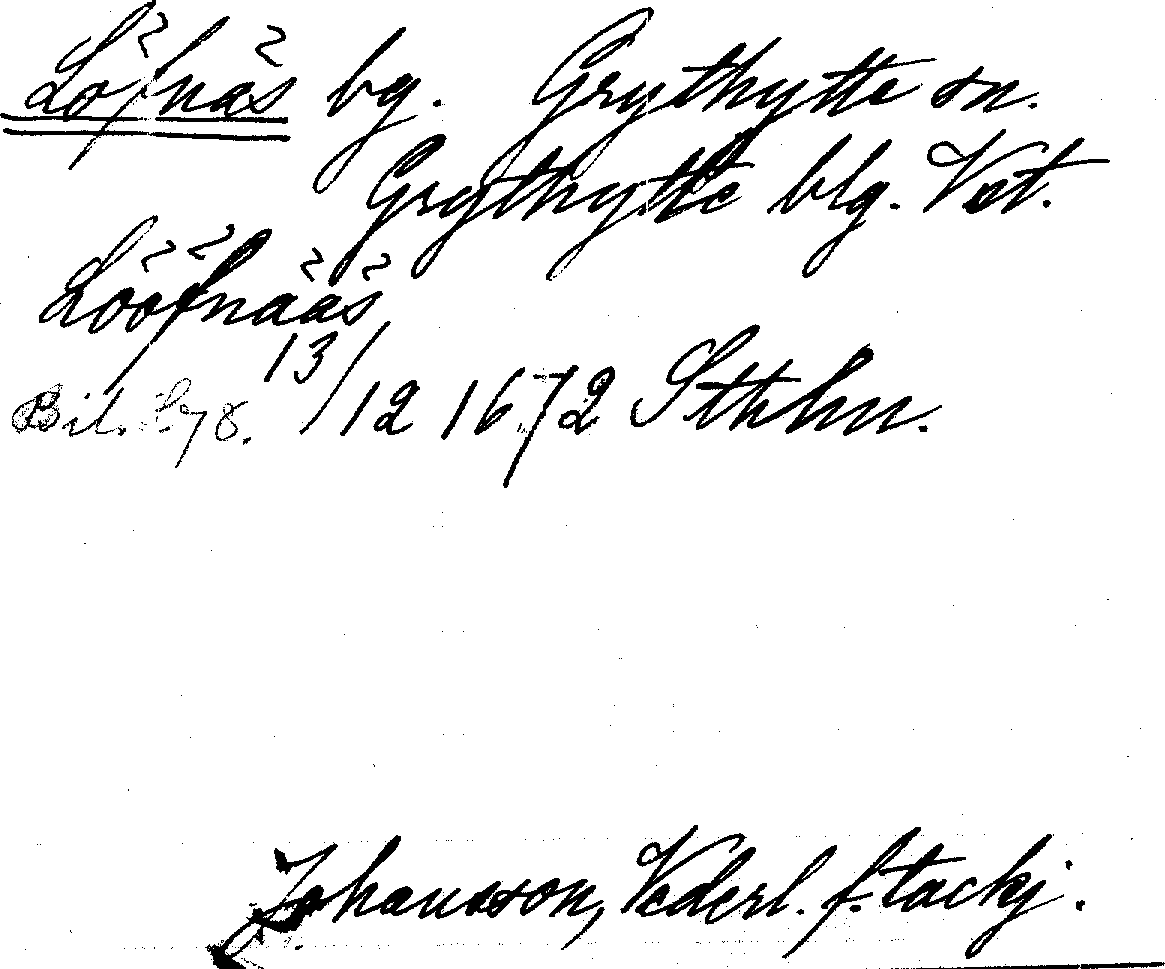 Löfnäs bg. Grythytte sn.
Grythytte blg. Vst.
Lööfnääs
13/12 1672 Sthlm.
Bil.
Johansson, Vederl. f. tackj.